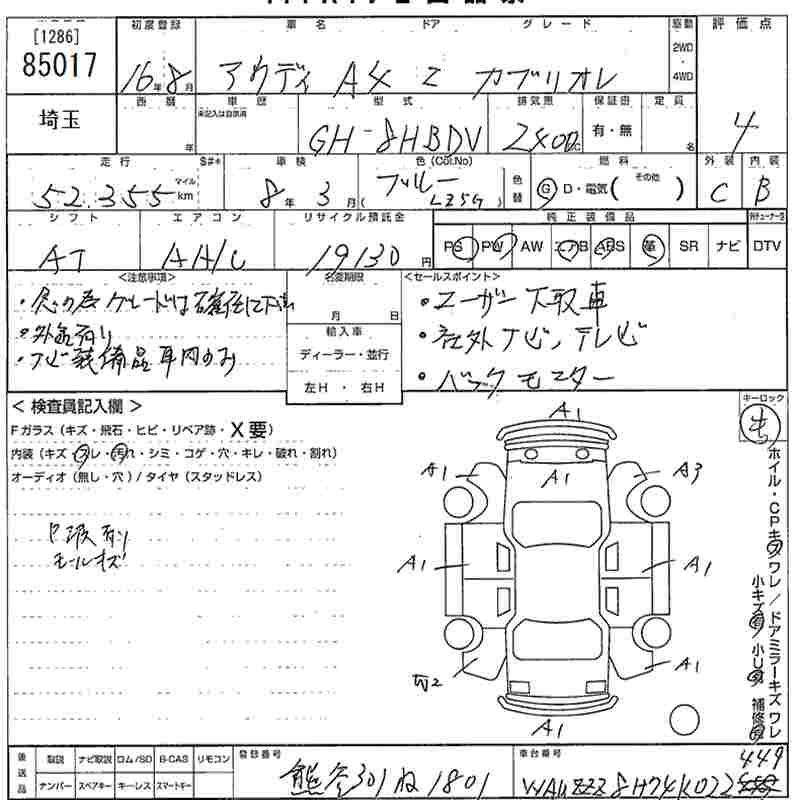 [1286]
85017
埼玉
初度登録 車名 ドア グレード 駆動 評価点
16年8月 アウディ A4 2 カブリオレ 2WD・4WD 4
西暦 年 車歴 未記入は自家用 型式 排気量 保証書 定員
GH-8HBDV 2400cc 有・無 名
走行 S#* 車検 色(Col.No) 燃料 外装 内装
52,355 マイル km 8年3月 ブルー LZ5G 色替 G D・電気( その他 ) C B
シフト エアコン リサイクル預託金 純正装備品
AT AA/C 19130円 PS PW AW エアB ABS 革 SR ナビ DTV
<注意事項> 名変期限 <セールスポイント>
月 日
・外色有り
・ナビ装備品車内のみ
輸入車
ディーラー・並行
左H・右H
・ユーザー下取車
・社外ナビ、テレビ
・バックモニター
<検査員記入欄>
Fガラス(キズ・飛石・ヒビ・リペア跡・X要)
内装(キズ・スレ・汚れ・シミ・コゲ・穴・キレ・破れ・割れ)
オーディオ(無し・穴)/タイヤ(スタッドレス)
モールキズ
キーロック
ホイル・CPキズワレ/ドアミラーキズワレ
小キズ有 小U 補修
A1
A1 A1 A3
A1 A1
W2 A1
A1
後送品 取説 ナビ取説 ロム/SD B-CAS リモコン
ナンバー スペアキー キーレス スマートキー
登録番号 熊谷301ね1801
車台番号 WAUZZZ8H74K022 449